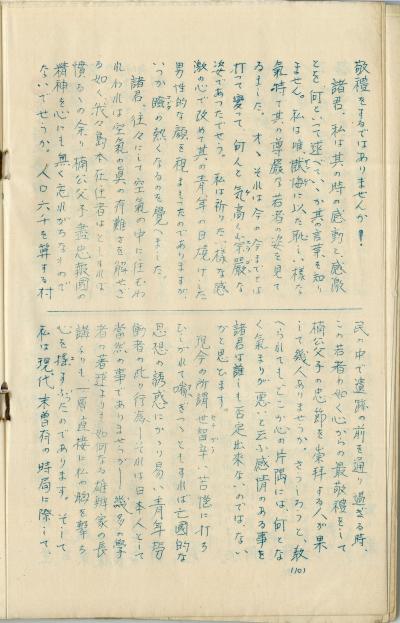 敬禮をするではありませんか!
諸君、私は其の時の感動と感激
とを何といって述べていゝか其の言葉を知り
ません。私は唯懺悔に以た恥しい様な
氣持で其の尊嚴な若者の姿を見て
ゐました。オヽそれは今の今までとは
打って變って何んと気高く崇嚴な
姿であったでせう。私は祈りたい様な感
激の心で改めて其の青年の日焼けした
男性的な顔を視ましたのでありますが、
いつか瞼の熱くなるのを覺へました。
諸君、往々にして空氣の中に住むわ
れわれは空氣の眞の有難さを解せざ
る如く、我々島本在住者はともすれば
慣るゝの余り楠公父子盡忠報國の
精神を心にも無く忘れがちなもので
ないでせうか。人口六千を算する村
民の中で遺跡の前を通り過ぎる時、
この若者の如く心からの最敬禮をして
楠公父子の忠節を崇拜する人が果
して幾人ありませうか。さうしろうと、教
へられても、どこか心の片隅には、何とな
く氣まりが悪いと云ふ感情のある事を
諸君は誰しも否定出來ないのではない
かと思ひます。
現今の所謂世智辛い苦惱に打ち
ひしがれて喘ぎつゝともすれば亡國的な
思想の誘惑にかゝり易い青年勞
働者の此の行為――それは日本人として
當然の事でありませうが――幾多の學
者の著述よりも如何なる雄辯家の長
講よりも一層直接に私の胸を撃ち
心を揺すぶったのであります。そして
私は現代未曾有の時局に際して、
(10)